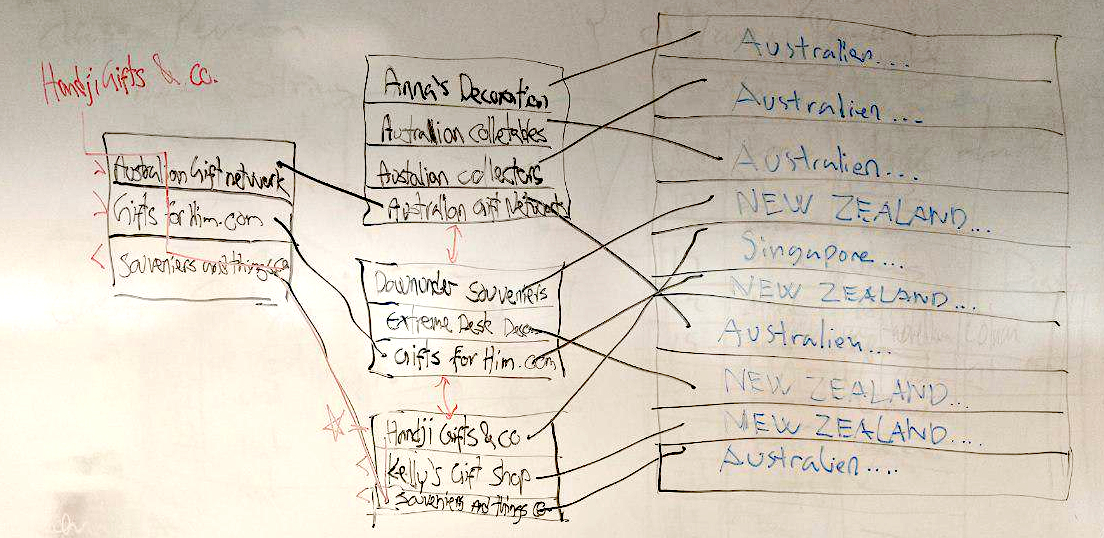 Handji Gifts & co.
Australian Gift network
Gifts for Him.com
Souveniers and things co
Anna's Decoration
Australlian colletables
Australian collectors
Australian Gift Network
Downunder Souveniers
Extreme Desk Decor
Gifts for Him.com
Handji Gifts & co
Kelly's Gift Shop
Souveniers And things co
Australien...
Australien...
Australien...
NEW ZEALAND...
Singapore...
NEW ZEALAND...
Australien...
NEW ZEALAND...
NEW ZEALAND....
Australien....